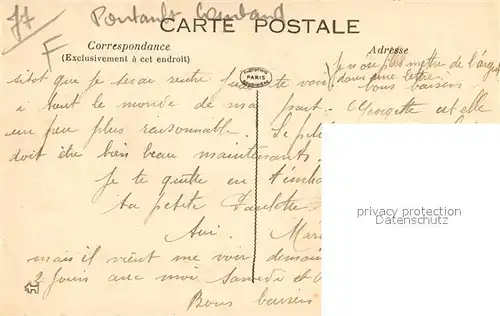 77
Pontault Combault
F
CARTE POSTALE
Correspondance
(Exclusivement à cet endroit)
Adresse
PARIS
Je n'ose plus mettre de l'argent
dans une lettre.
Bons baisers
sitôt que je serai rentré te voir
à tout le monde de ma part. Georgette est elle
un peu plus raisonnable. Le
doit être bien beau maintenant.
Je te quitte en
ta petite Paulette
Marc
mais il vient me voir demain
2 jours avec moi Samedi et
Bons baisers
privacy protection
watermark